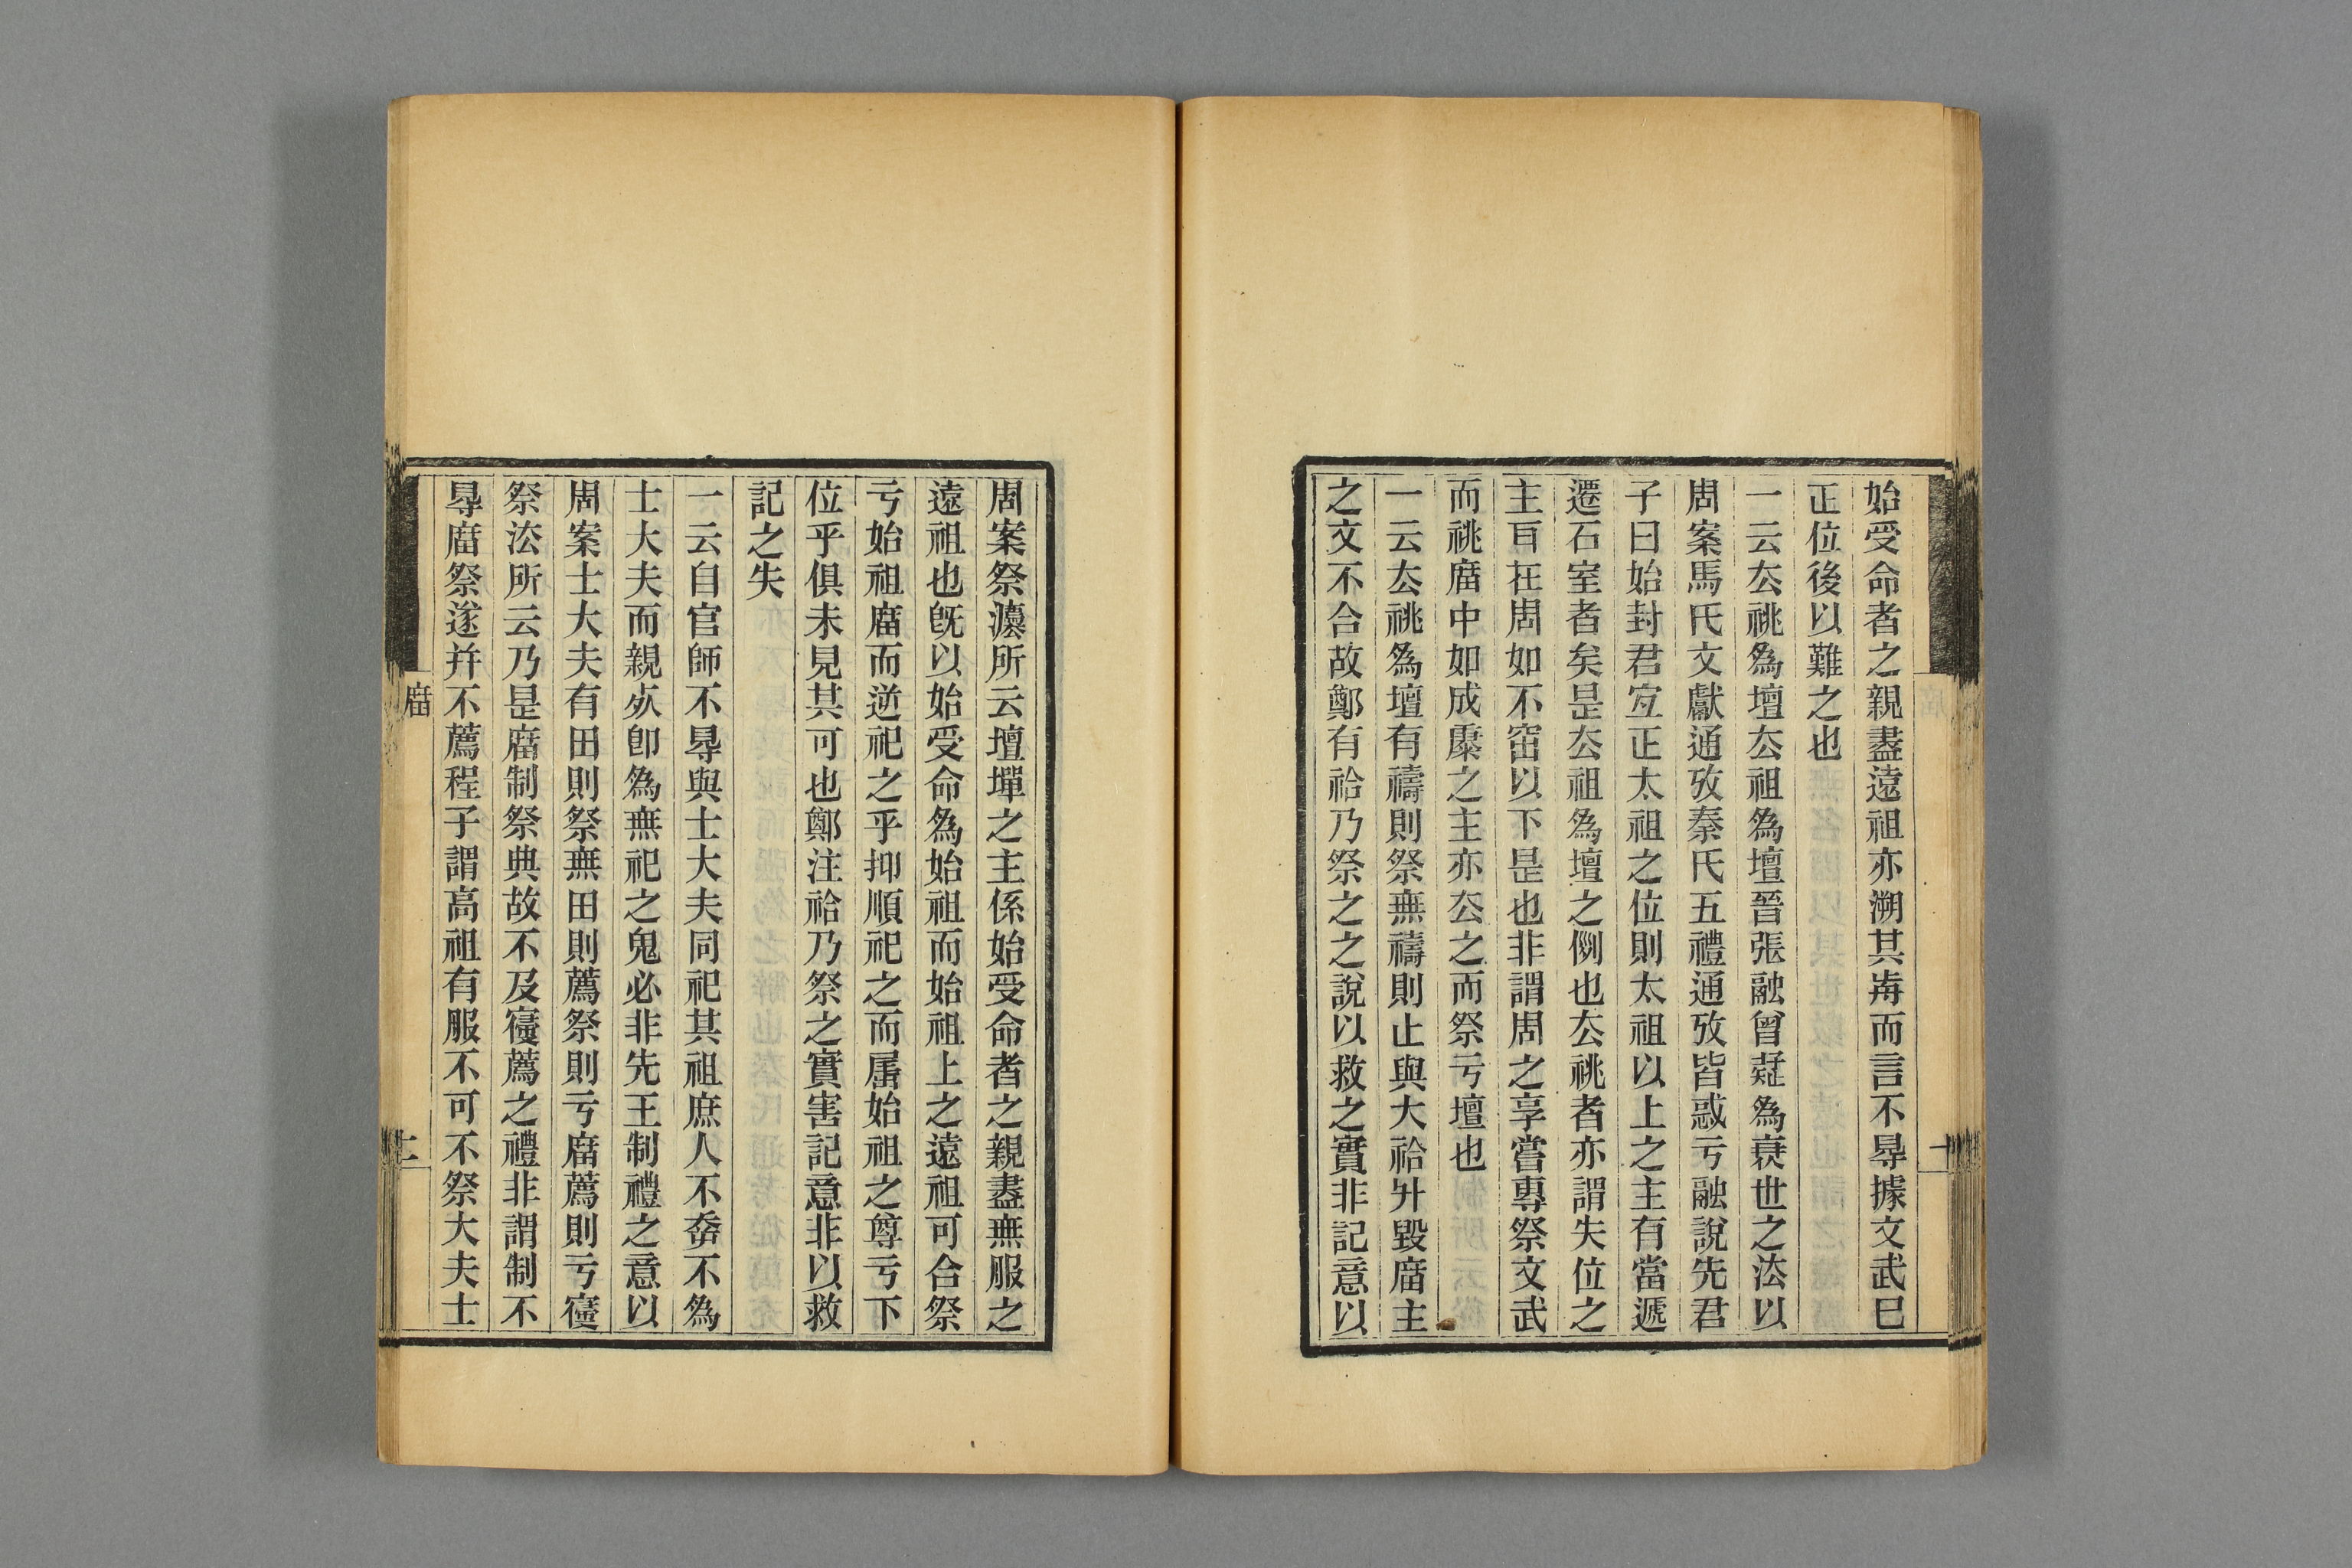 始受命者之親盡遠祖亦溯其歬而言不㝵據文武巳
正位後以難之也
一云厺祧爲壇厺祖爲壇晉張融曾疑爲衰世之法以
周案馬氏文獻通攷秦氏五禮通攷皆惑亏融說先君
子曰始封君宐正太祖之位則太祖以上之主有當遞
遷石室者矣是厺祖爲壇之例也厺祧者亦謂失位之
主百在周如不窋以下是也非謂周之享嘗專祭文武
而祧庿中如成康之主亦厺之而祭亏壇也
一云厺祧爲壇有禱則祭無禱則止與大祫升毀庿主
之文不合故鄭有祫乃祭之之說以救之實非記意以
周案祭灋所云壇墠之主係始受命者之親盡無服之
遠祖也旣以始受命爲始祖而始祖上之遠祖可合祭
亏始祖庿而逆祀之乎抑順祀之而屠始祖之尊亏下
位乎俱未見其可也鄭注祫乃祭之實害記意非以救
記之失
一云自官師不㝵與士大夫同祀其祖庶人不奠不爲
士大夫而親㱁卽爲無祀之鬼必非先王制禮之意以
周案士大夫有田則祭無田則薦祭則亏庿薦則亏寑
祭法所云乃是庿制祭典故不及寑薦之禮非謂制不
㝵庿祭遂幷不薦程子謂高祖有服不可不祭大夫士
庿